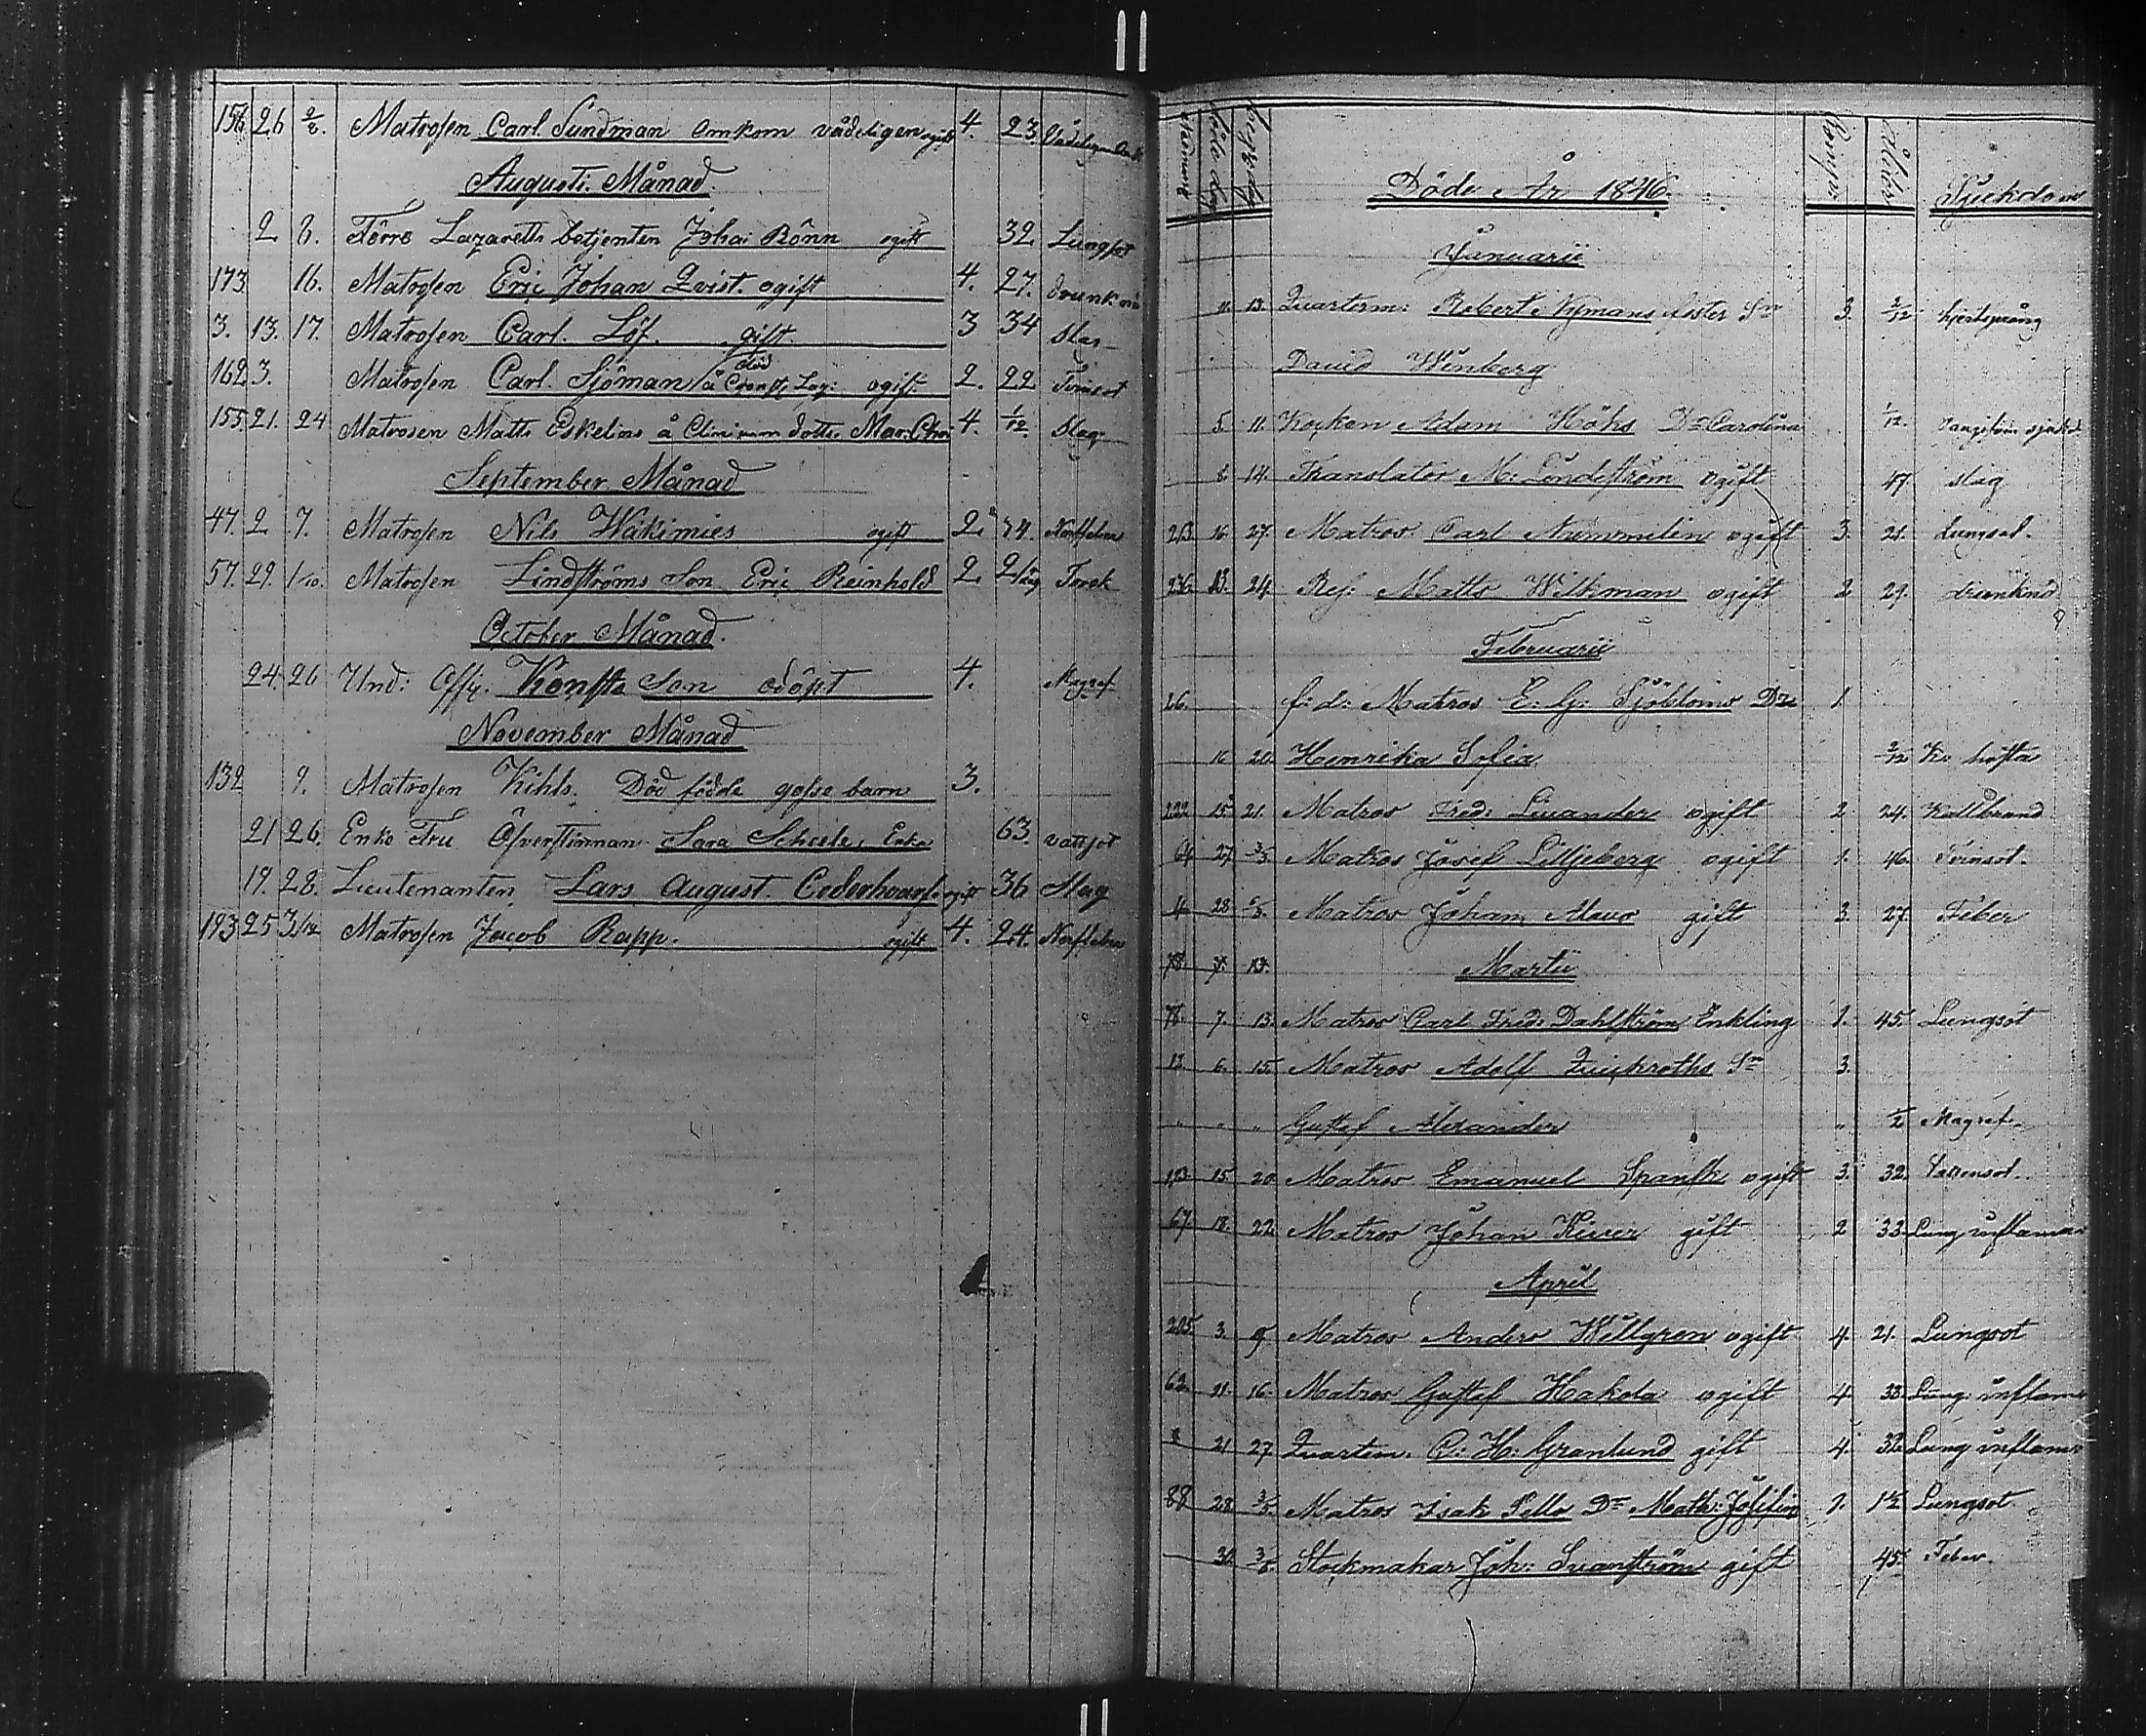 156 26 2/8. Matrosen Carl Sundman omkom vådeligen ogift 4. 23.
Augusti Månad.
2 8. Förre Lazaretts betjenten Johan Rönn ogift 32 Lungsot
173 16. Matrosen Eric Johan Qvist. ogift 4. 27.
3. 13. 17. Matrosen Carl. Löf. gift. 3 34 Slag
död
162 3. Matrosen Carl. Sjöman å Cronst. Laz: ogift. 2. 22 Tvinsot
155. 21. 24 Matrosen Matts Eskelins å Clinicum dotter Mar. 4. 1/12. Slag
September Månad
47. 2 7. Matrosen Nils Wäkimies ogift 2 Nerffeber
57. 29. 1/10. Matrosen Lindströms Son Eric Reinhold 2 Torsk
October Månad.
24. 26 Und: Offic. Konsts Son odöpt 4. Magref
November Månad
139 9. Matrosen Kihls. Död födde gosse barn 3.
21 26. Enke Fru Öfverstinnan Sara Scheele, Enka 63. vattsot
19. 28. Lieutenanten Lars August. ogift 36 Slag
193 25 3/12 Matrosen Jacob Rapp. ogift 4. 24. Nerffeber
Döde År 1846.
Sjukdom
Januarii
11. 13. Quarterm: Robert Nymans foster Sn 3 2/12 hjertsprång
David Winberg
5. 11. Kocken Adam Höks Dr Carolina 1/12.
8. 14. Translator M: Lindström ogift 47 slag
213 16 27. Matros Carl Nummelin ogift 3. 21. Lungsot.
236 13. 24. Res: Matts Wilkman ogift 2 29. drunknad
Februarii
26. f: d: Matros E: G: Sjöbloms Dr 1.
16 20. Henrika Sofia 2/12 Kv hosta
222 15 21. Matros Fred: Livander ogift 2 24. Kallbrand
64 27. 3/3. Matros Josef Lilljeberg ogift 1. 46. Tvinsot.
4 28 5/3. Matros Johan Alavo gift 3. 27. Feber
78. 7. 13. Martii
78. 7. 13. Matros Carl Fred: Dahlström Enkling 1. 45. Lungsot
12. 6. 15. Matros Adolf Quickroths Sn 3.
" " " Gustaf Alexander " 1/2 Magref.
193 15 20. Matros Emanuel Spansk ogift 3. 32. Vattensot.
67. 18. 22. Matros Johan Kiurer gift 2 33. Lung inflama
April
205 3. 9 Matros Anders Wellgren ogift 4. 21. Lungsot
62. 11. 16. Matros Gustaf Hakola ogift 4 33. Lung: inflam
21 27. Quartm. C: H: Granlund gift 4. Lung inflam
88 28. 3/5. Matros Isak Pello Dr Math: Josefina 1. 1 1/2 Lungsot
30. Stockmakar Joh: Svanström gift 45. Feber.